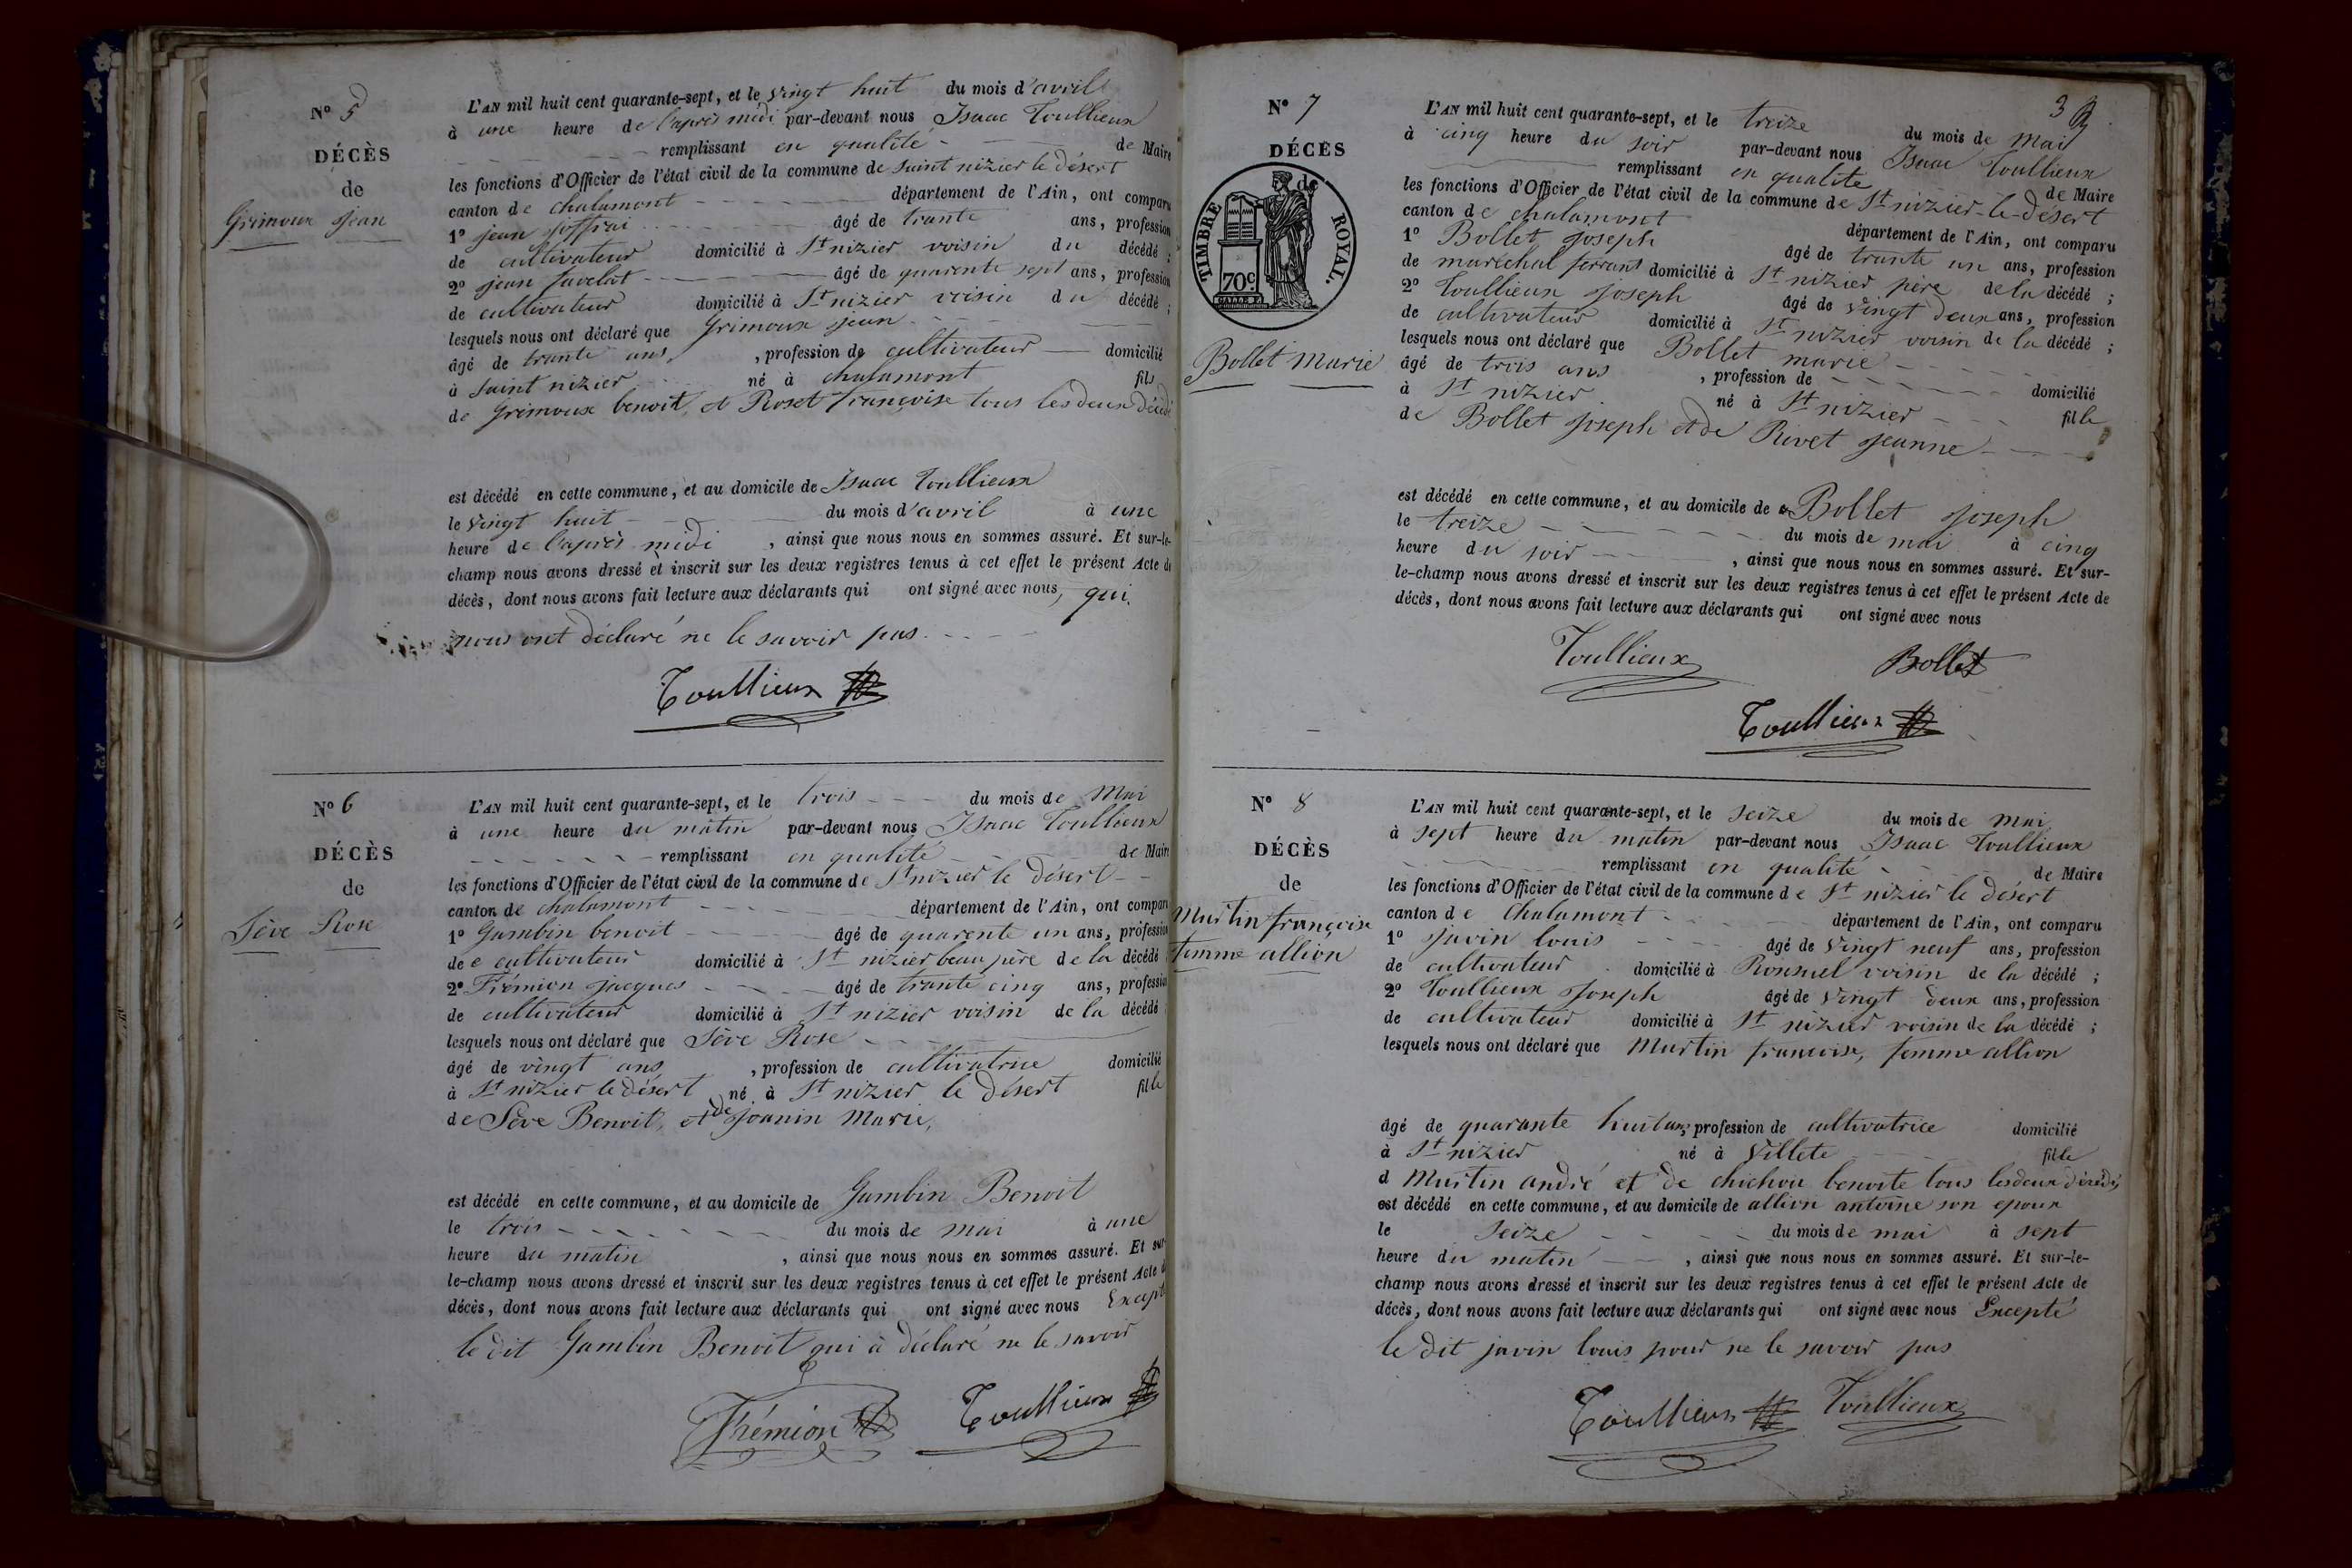 N° 5
DÉCÈS
de
Grimoux jean
L'AN mil huit cent quarante-sept, et le vingt huit du mois d'avril
à une heure de l'après midi par-devant nous Isaac Toullieux
remplissant en qualité de Maire
les fonctions d'Officier de l'état civil de la commune de saint nizier le désert
canton de chalamont département de l'Ain, ont comparu
1° jean joffrai âgé de trante ans, profession
de cultivateur domicilié à St nizier voisin du décédé ;
2° jean favelat âgé de quarente sept ans, profession
de cultivateur domicilié à St nizier voisin du décédé ;
lesquels nous ont déclaré que Grimoux jean
âgé de trante ans, , profession de cultivateur domicilié
à saint nizier né à chalamont fils
de Grimoux benoit, et Roset françoise tous les deux décédé
est décédé en cette commune, et au domicile de Isaac Toullieux
le vingt huit du mois d'avril à une
heure de l'après midi , ainsi que nous nous en sommes assuré. Et sur-le-
champ nous avons dressé et inscrit sur les deux registres tenus à cet effet le présent Acte de
décès, dont nous avons fait lecture aux déclarants qui ont signé avec nous, qui
nous ont déclaré ne le savoir pas.
Toullieux
N° 6
DÉCÈS
de
Sève Rose
L'AN mil huit cent quarante-sept, et le trois du mois de Mai
à une heure du matin par-devant nous Isaac Toullieux
remplissant en qualité de Maire
les fonctions d'Officier de l'état civil de la commune de St nizier le désert
canton de chalamont département de l'Ain, ont comparu
1° Gambin benoit âgé de quarente un ans, profession
de e cultivateur domicilié à St nizier beau père de la décédé
2° Frémion jacques âgé de trante cinq ans, profession
de cultivateur domicilié à St nizier voisin de la décédé
lesquels nous ont déclaré que Sève Rose
âgé de vingt ans , profession de cultivatrice domicilié
à St nizier le désert né à St nizier le désert fille
de Sève Benoit, et de Joanin Marie,
est décédé en cette commune, et au domicile de Gambin Benoit
le trois du mois de mai à une
heure du matin , ainsi que nous nous en sommes assuré. Et sur-
le-champ nous avons dressé et inscrit sur les deux registres tenus à cet effet le présent Acte de
décès, dont nous avons fait lecture aux déclarants qui ont signé avec nous Excepté
le dit Gambin Benoit qui à déclaré ne le savoir
Frémion Toullieux
3
N° 7
DÉCÈS
de
TIMBRE ROYAL.
70c
Bollet Marie
L'AN mil huit cent quarante-sept, et le treize du mois de Mai
à cinq heure du soir par-devant nous Isaac Toullieux
remplissant en qualité de Maire
les fonctions d'Officier de l'état civil de la commune de St nizier-le-désert
canton de chalamont département de l'Ain, ont comparu
1° Bollet joseph âgé de trante un ans, profession
de maréchal ferrant domicilié à St nizier père de la décédé ;
2° Toullieux joseph âgé de vingt deux ans, profession
de cultivateur domicilié à St nizier voisin de la décédé ;
lesquels nous ont déclaré que Bollet marie
âgé de trois ans , profession de domicilié
à St nizier né à St nizier fille
de Bollet joseph et de Rivet jeanne
est décédé en cette commune, et au domicile de Bollet joseph
le treize du mois de mai à cinq
heure du soir , ainsi que nous nous en sommes assuré. Et sur-
le-champ nous avons dressé et inscrit sur les deux registres tenus à cet effet le présent Acte de
décès, dont nous avons fait lecture aux déclarants qui ont signé avec nous
Toullieux Bollet
Toullieux
N° 8
DÉCÈS
de
Martin françoise
femme allion
L'AN mil huit cent quarante-sept, et le seize du mois de mai
à sept heure du matin par-devant nous Isaac Toullieux
remplissant en qualité de Maire
les fonctions d'Officier de l'état civil de la commune de St nizier le désert
canton de Chalamont département de l'Ain, ont comparu
1° javin louis âgé de vingt neuf ans, profession
de cultivateur domicilié à Ronsuel voisin de la décédé ;
2° Toullieux joseph âgé de vingt deux ans, profession
de cultivateur domicilié à St nizier voisin de la décédé ;
lesquels nous ont déclaré que Martin francoise, femme allion
âgé de quarante huit ans, profession de cultivatrice domicilié
à St nizier né à Villete fille
d Martin andré et de chichou benoite tous les deux décédés
est décédé en cette commune, et au domicile de allion antoine son epoux
le seize du mois de mai à sept
heure du matin , ainsi que nous nous en sommes assuré. Et sur-le-
champ nous avons dressé et inscrit sur les deux registres tenus à cet effet le présent Acte de
décès, dont nous avons fait lecture aux déclarants qui ont signé avec nous Excepté
le dit javin louis pour ne le savoir pas
Toullieux Toullieux